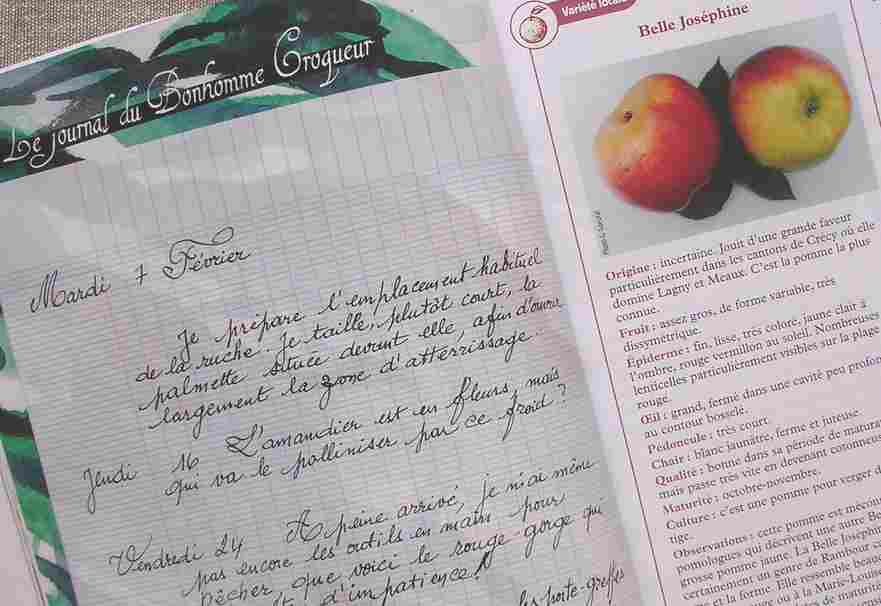 Le journal du Bonhomme Croqueur
Mardi 7 Février
Je prépare l'emplacement habituel
de la ruche. Je taille, plutôt court, la
palmette située devant elle, afin d'ouvrir
largement la zone d'atterrissage.
Jeudi 16 L'amandier est en fleurs, mais
qui va le polliniser par ce froid ?
Vendredi 24 A peine arrivé, je n'ai même
pas encore les outils en main pour
bêcher, que voici le rouge-gorge qui
d'impatience !
les porte-greffes
Variété locale
Belle Joséphine
Origine : incertaine. Jouit d'une grande faveur
particulièrement dans les cantons de Crécy où elle
domine Lagny et Meaux. C'est la pomme la plus
connue.
Fruit : assez gros, de forme variable, très
dissymétrique.
Épiderme : fin, lisse, très coloré, jaune clair à
l'ombre, rouge vermillon au soleil. Nombreuses
lenticelles particulièrement visibles sur la plage
rouge.
Œil : grand, fermé dans une cavité peu profon
au contour bosselé.
Pédoncule : très court.
Chair : blanc jaunâtre, ferme et juteuse.
Qualité : bonne dans sa période de matura
mais passe très vite en devenant cotonneus
Maturité : octobre-novembre.
Culture : c'est une pomme pour verger d
tige.
Observations : cette pomme est mécon
pomologues qui décrivent une autre Be
grosse pomme jaune. La Belle Joséphi
certainement un genre de Rambour c
la forme. Elle ressemble beauc
ou à la Marie-Louis
de maturi